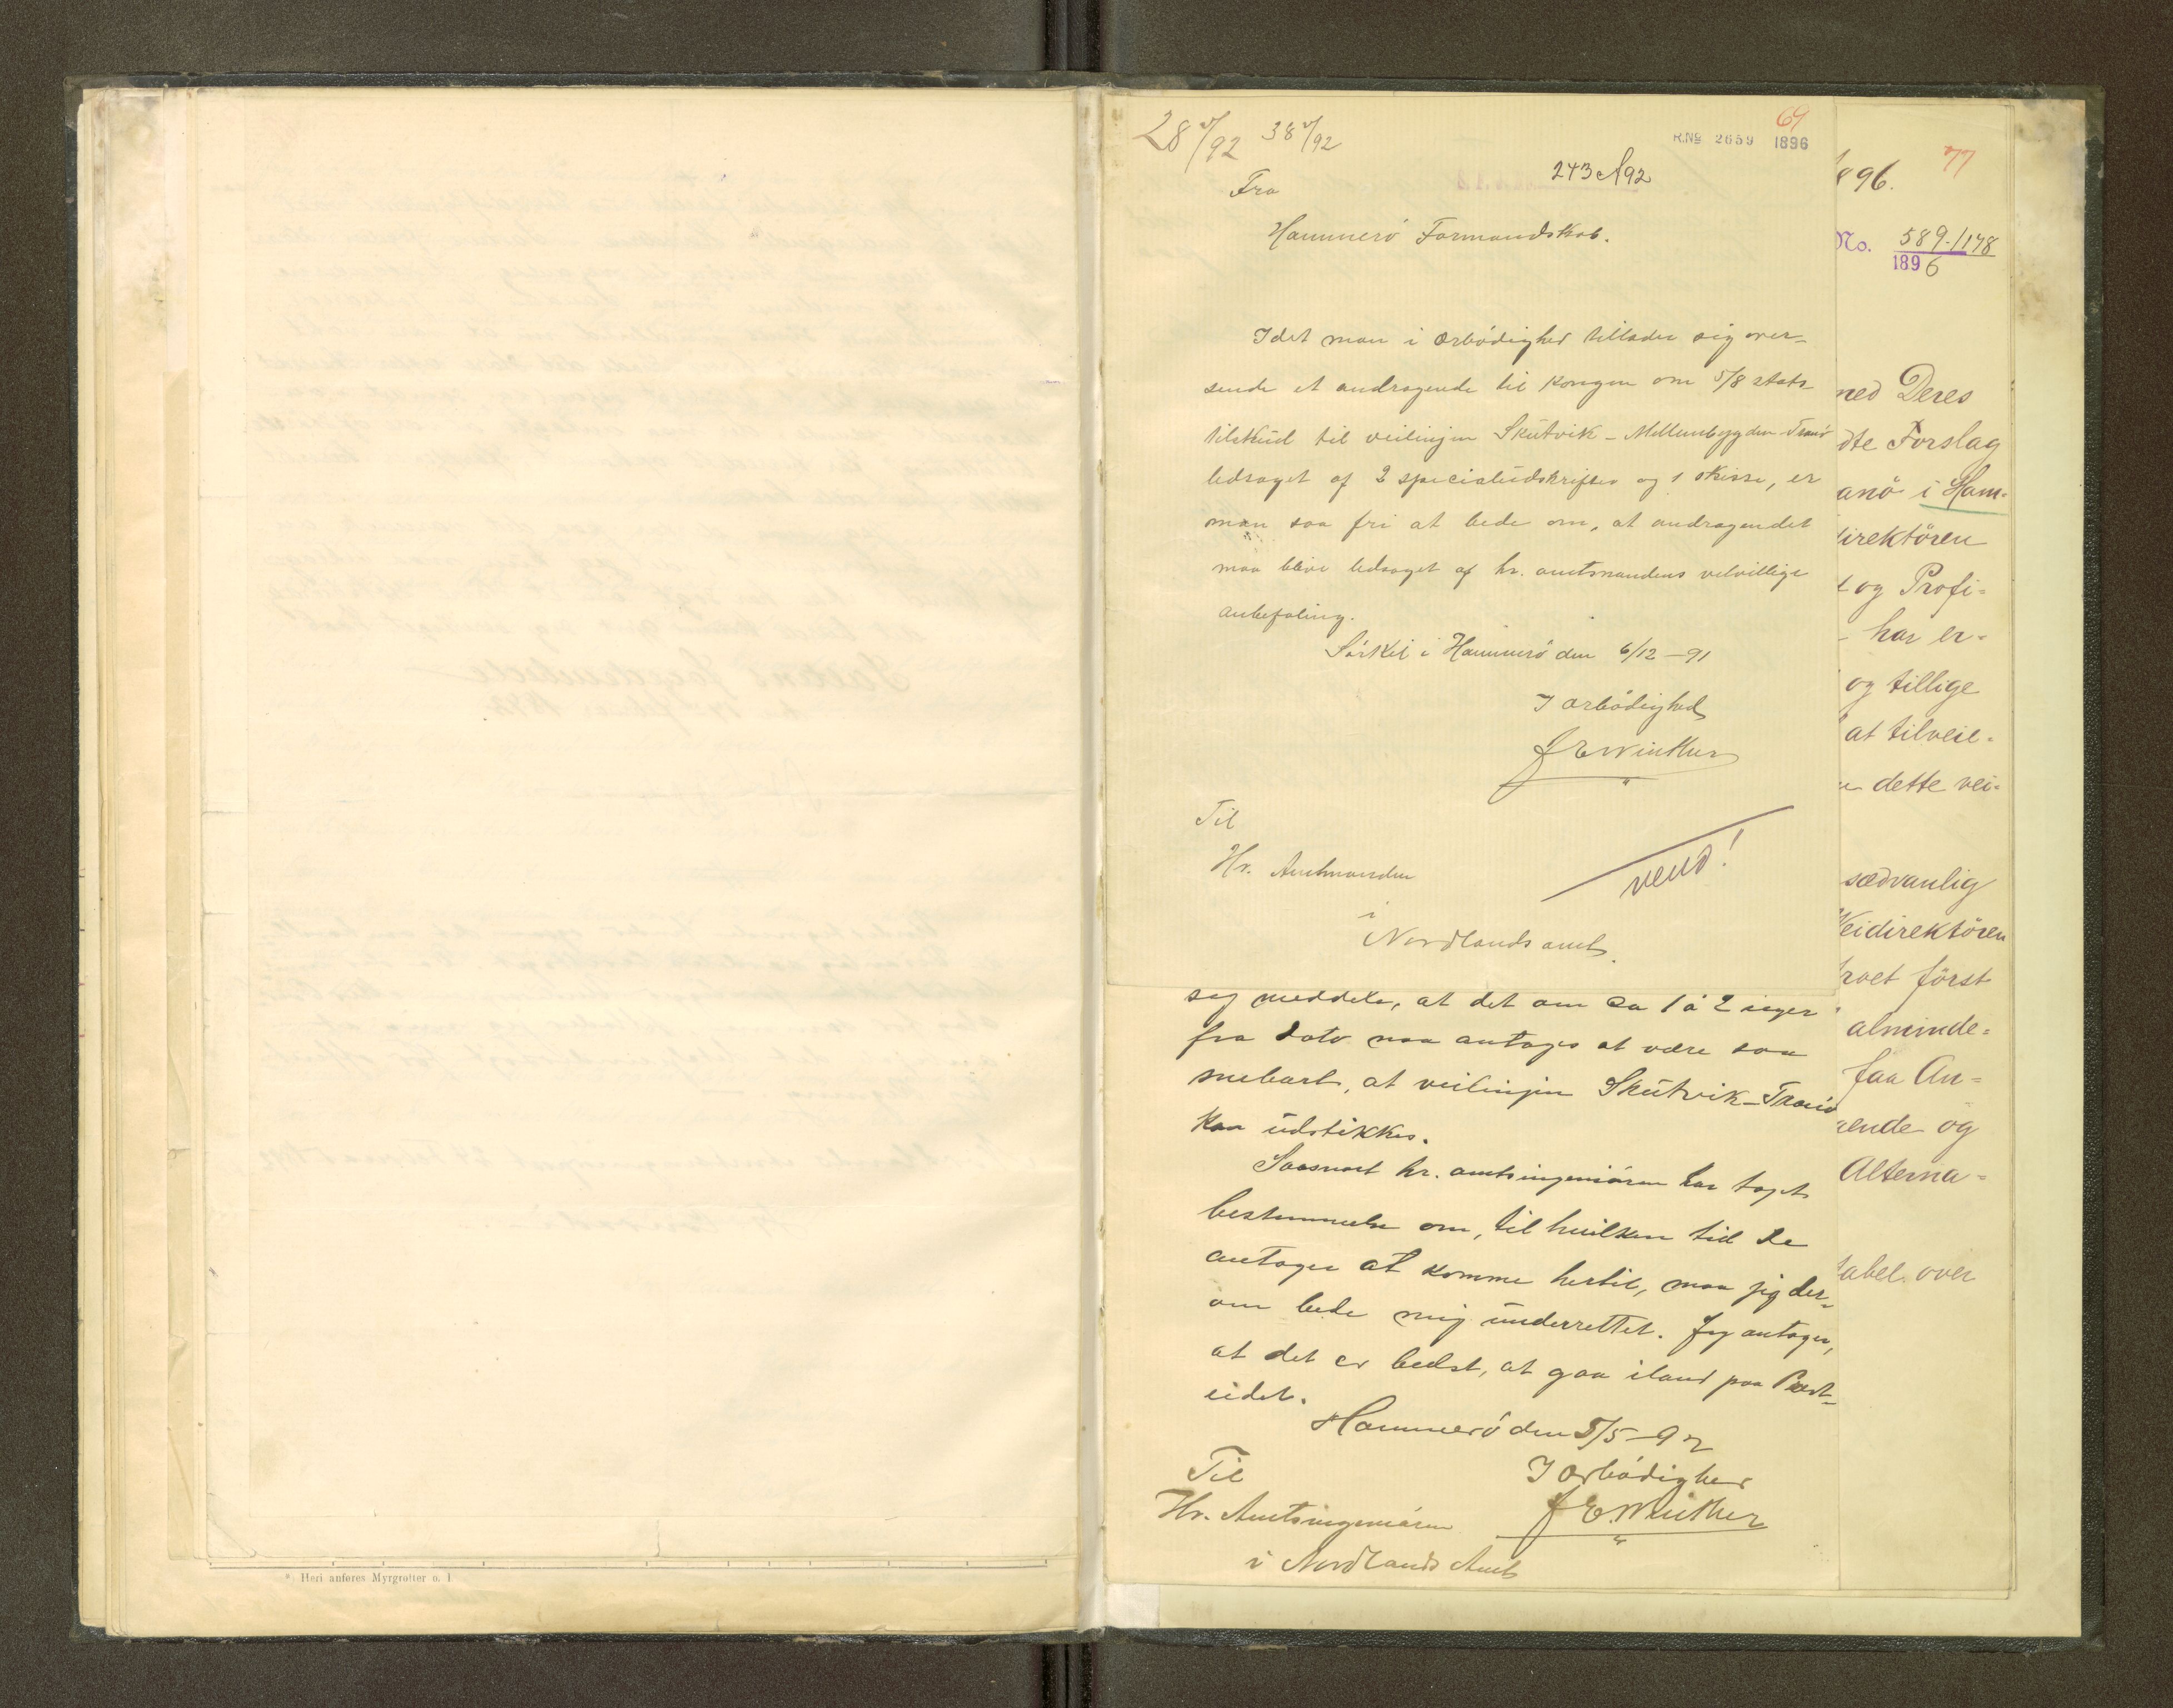 28 V/92 38 V/92
69
R.No 2659 1896
243 A 92
Fra
Hammerö Formandskab.
Idet man i ærbödighed tillader sig over-
sende et andragende til Kongen om 5/8 stats
tilskud til veilinjen Skutvik - Mellembygden - Tranö
ledsaget af 2 specialudskrifter og 1 skisse, er
man saa fri at bede om, at andragendet
maa blive ledsaget af hr. amtmandens velvillige
anbefaling.
Sörkil i Hammerö den 6/12 - 91
I ærbödighed
J E Winther
Til
Hr. Amtmanden
i
Nordlands amt.
vend!
sig meddele, at det om ca 1 à 2 uger
fra dato maa antages at være saa
snebart, at veilinjen Skutvik - Tranö
kan udstikkes.
Saasnart hr. amtsingeniören har taget
bestemmelse om, til hvilken tid De
antager at komme hertil, maa jeg der-
om bede mig underrettet. Jeg antager,
at det er bedst, at gaa iland paa Prest-
eidet.
Hammerö den 5/5 - 92
I ærbödighed
J E. Winther
Til
Hr. Amtsingeniören
i Nordlands Amt
896. 77
No. 589./178
1896
med Deres
dte Forslag
anö i Ham-
direktören
t og Profi-
- har er-
og tillige
at tilveie-
n dette vei-
sædvanlig
Veidirektören
rvet först
alminde-
faa An-
ende og
Alterna-
tabel over
*) Heri anføres Myrgrøfter o. l